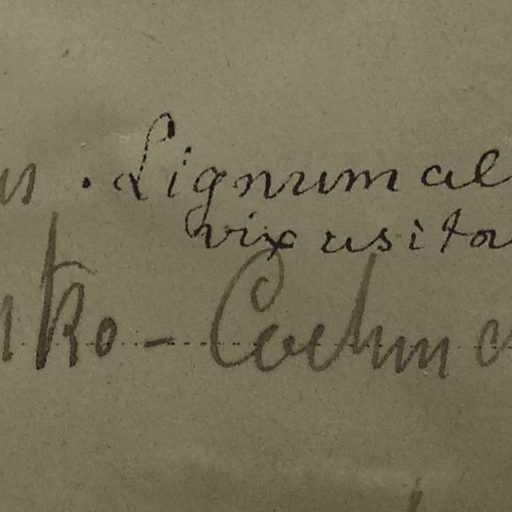 us . Lignum al
vix usita
ko - Cochinc